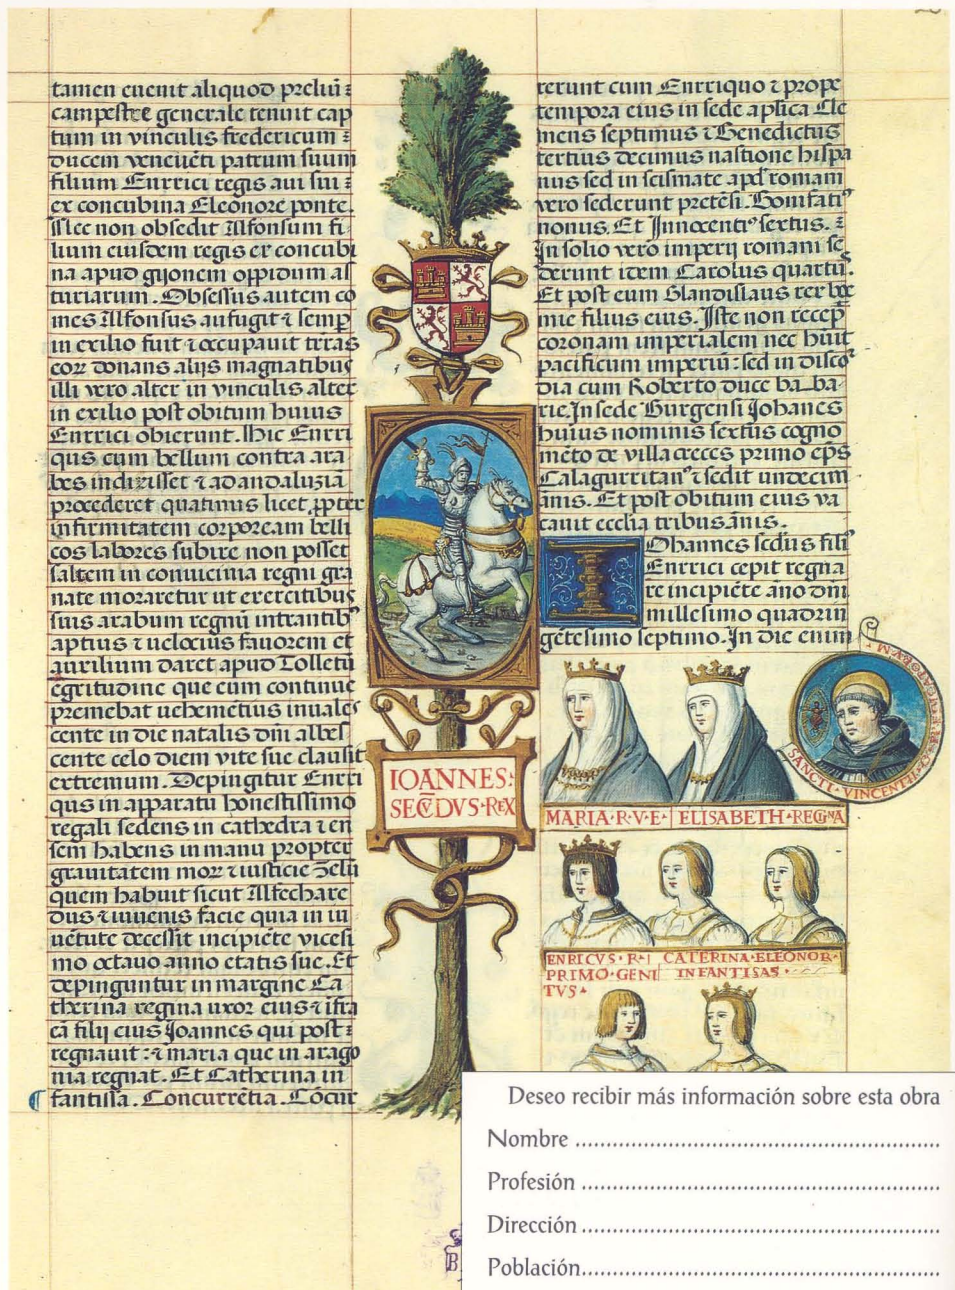 tamen euenit aliquod preliū ⁊
campestre generale tenuit cap
tum in vinculis fredericum ⁊
ducem veneuēti patrum suum
filium Enrrici regis aui sui ⁊
ex concubina Eleonore ponte.
Nec non obsedit Alfonsum fi
lium eiusdem regis ex concubi
na apud gijonem oppidum as
turiarum. Obsessus autem co
mes Alfonsus aufugit ⁊ semp
in exilio fuit ⁊ occupauit terras
eoꝝ donans alijs magnatibus
illi vero alter in vinculis alter
in exilio post obitum huius
Enrrici obierunt. Hic Enrri
qus cum bellum contra ara
bes indixisset ⁊ ad andaluziā
procederet quatinus licet propter
infirmitatem corpoream belli
cos labores subire non posset
saltem in conuicinia regni gra
nate moraretur ut exercitibus
suis arabum regnū intrantibꝰ
aptius ⁊ uelocius fauorem et
auxilium daret apud Tolletū
egritudine que eum continue
premebat uehemētius inuales
cente in die natalis dm̄ albes
cente celo diem vite sue clausit
extremum. Depingitur Enrri
qus in apparatu honestissimo
regali sedens in cathedra ⁊ en
sem habens in manu propter
grauitatem moꝝ ⁊ iusticie zelū
quem habuit sicut Alfechare
dus ⁊ iuuenis facie quia in iu
uētute decessit incipiēte vicesi
mo octauo anno etatis sue. Et
depinguntur in margine Ca
therina regina uxor eius ⁊ ifra
eā filij eius Joannes qui post ⁊
regnauit : ⁊ maria que in arago
nia regnat. Et Catherina in
fantissa. Concurrētia. Cōcur
rerunt cum Enrriquo ⁊ prope
tempora eius in sede aplica Cle
mens septimus ⁊ Benedictus
tertius decimus nastione hispa
nus sed in scismate apd romam
vero sederunt pretēsi. Bonifatiꝰ
nonus. Et Innocentiꝰ sextus. ⁊
In solio vero imperij romani se
derunt item Carolus quartū.
Et post eum Vlandislaus rex boe
mie filius eius. Iste non recep
coronam imperialem nec huit
pacificum imperiū : sed in disco
dia cum Roberto duce ba. ba
rie. In sede Burgensi Johanes
huius nominis sextus cogno
mēto de villacreces primo eps̄
Calagurritanꝰ ⁊ sedit undecim
annis. Et post obitum eius va
cauit ecclīa tribus ānis.
IOhannes scdūs filiꝰ
Enrrici cepit regna
re incipiēte año dm̄
millesimo quadrin
gētesimo septimo. In die enim
IOANNES.
SECV̄DVS · REX
SANCTI · VINCENTII
MARIA · R · V · E · ELISABETH · REGINA
ENRICVS · R · I CATERINA · ELEONOR ·
PRIMO · GENI INFANTISAS ·
TVS ·
Deseo recibir más información sobre esta obra
Nombre
Profesión
Dirección
Población